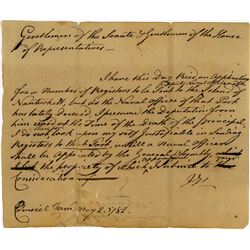 Gentlemen of the Senate & Gentlemen of the House
of Representatives —
I have this Day Recd an Application
for a Number of Registers to be Sent to the Island of
Nantuckett, but as the Naval Officer of that Port
has lately Deceased, I presume the Deputation from
him at the Time of the Death of the principal,
I do not look upon my self Justifiable in Sending
Registers to that Port, untill a Naval Officer
shall be appointed by the General Assembly
the propriety of which I submit to
Consideration
Council Cham. May 2. 1782.